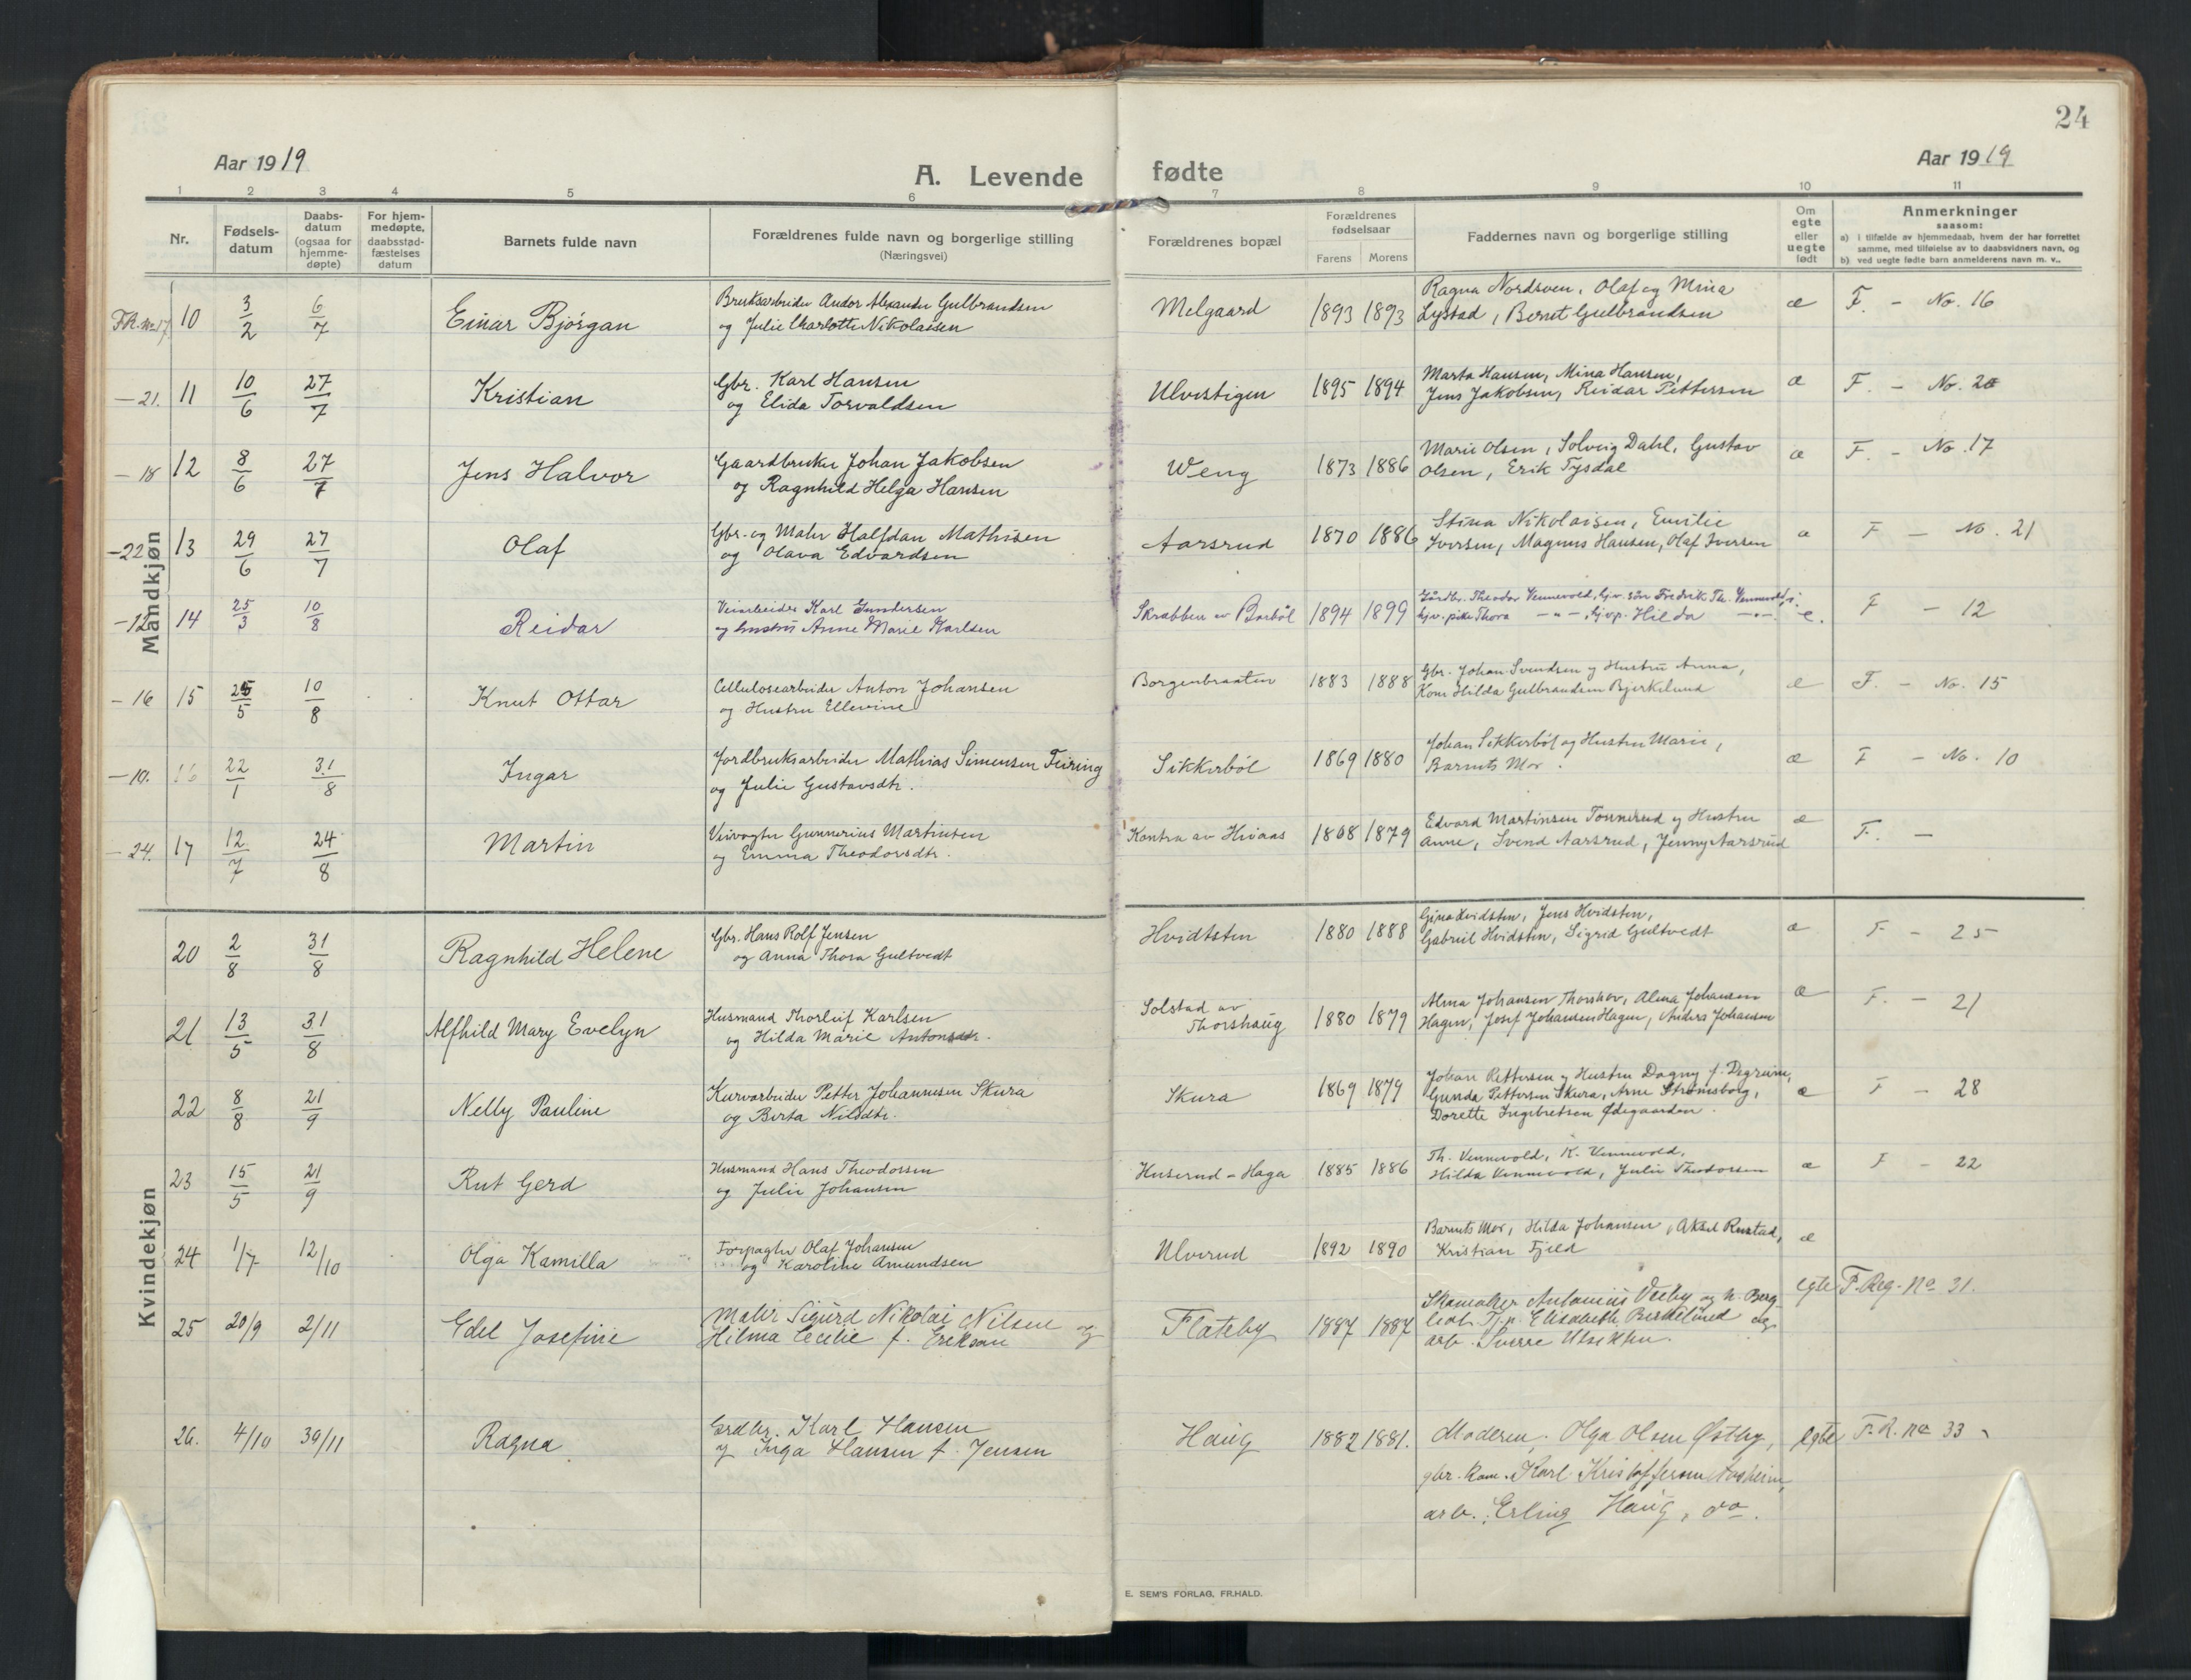 24
Aar 1919
A. Levende fødte
Aar 1919
1 2 3 4 5 6 7 8 9 10 11
Nr.
Fødsels-datum
Daabs-datum (ogsaa for hjemme-døpte)
For hjem-medøpte, daabsstad-fæstelses datum
Barnets fulde navn
Forældrenes fulde navn og borgerlige stilling
(Næringsvei)
Forældrenes bopæl
Forældrenes fødselsaar
Farens Morens
Faddernes navn og borgerlige stilling
Om egte eller uegte født
Anmerkninger
saasom:
a) i tilfælde av hjemmedaab, hvem der har forrettet
samme, med tilføielse av to daabsvidners navn, og
b) ved uegte fødte barn anmelderens navn m. v..
Mandkjøn
F.R. No 17 10 3/2 6/7 Einar Bjørgan
Bruksarbeider Andor Alexander Gulbrandsen
og Julie Charlotte Nikolaisen
Melgaard 1893 1893
Ragna Nordsven, Olaf og Mina
Lystad, Bernt Gulbrandsen
æ F. - No. 16
- 21. 11 10/6 27/7 Kristian
Gbr. Karl Hansen
og Elida Torvaldsen
Ulvestigen 1895 1894
Marta Hansen, Mina Hansen,
Jens Jakobsen, Reidar Pettersen
æ F. - No. 20
- 18 12 8/6 27/7 Jens Halvor
Gaardbruker Johan Jakobsen
og Ragnhild Helga Hansen
Weng 1873 1886
Marie Olsen, Solveig Dahl, Gustav
Olsen, Erik Tysdal
æ F. - No. 17
- 22 13 29/6 27/7 Olaf
Gbr. og Maler Halfdan Mathisen
og Olava Edvardsen
Aarsrud 1870 1886
Stina Nikolaisen, Emilie
Iversen, Magnus Hansen, Olaf Iversen
æ F - No. 21
- 12 14 25/3 10/8 Reidar
Veiarbeider Karl Gundersen
og hustru Anne Marie Karlsen
Skrabben av Barbøl 1894 1899
Gårdbr. Theodor Vennevold, hjv. sön Fredrik Th. Vennevold,
hjv. pike Thora - " - , hjv.p. Hilda - " -
e. F - 12
- 16 15 25/5 10/8 Knut Ottar
Cellulosearbeider Anton Johansen
og Hustru Ellevine
Borgenbraaten 1883 1888
Gbr. Johan Svendsen og Hustru Anna,
Kone Hilda Gulbrandsen Bjerkelund
e F. - No. 15
- 10. 16 22/1 31/8 Ingar
Jordbruksarbeider Mathias Simensen Feiring
og Julie Gustavsdtr.
Sikkerbøl 1869 1880
Johan Sikkerbøl og Hustru Marie,
Barnets Mor.
æ F - No. 10
- 24. 17 12/7 24/8 Martin
Veivogter Gunnerius Martinsen
og Emma Theodorsdtr.
Kontra av Hvaas 1868 1879
Edvard Martinsen Tonnerud og Hustru
Anne, Svend Aarsrud, Jenny Aarsrud
æ F. -
Kvindekjøn
20 2/8 31/8 Ragnhild Helene
Gbr. Hans Rolf Jensen
og Anna Thora Gultvedt
Hvidtsten 1880 1888
Gina Hvidsten, Jens Hvidsten,
Gabriel Hvidsten, Sigrid Gultvedt
æ F - 25
21 13/5 31/8 Alfhild Mary Evelyn
Husmand Thorleif Karlsen
og Hilda Marie Antonsdtr.
Solstad av
Thorshaug 1880 1879
Alma Johansen Thorshov, Alma Johansen
Hagen, Josef Johansen Hagen, Andrea Johansen
æ F. - 21
22 8/8 21/9 Nelly Pauline
Kurvarbeider Petter Johannesen Skura
og Berta Nilsdtr.
Skura 1869 1879
Johan Pettersen og Hustru Dagny f. Degrum,
Gunda Pettersen Skura, Arne Strømsborg,
Dorette Ingebretsen Ødegaarden.
æ F - 28
23 15/5 21/9 Rut Gerd
Husmand Hans Theodorsen
og Julie Johansen
Huserud - Haga 1885 1886
Th. Vennevold, K. Vennevold,
Hilda Vennevold, Julie Theodorsen
æ F - 22
24 1/7 12/10 Olga Kamilla
Forpagter Olaf Johansen
og Karoline Amundsen
Ulverud 1892 1890
Barnets Mor, Hilda Johansen, Aksel Rustad,
Kristian Fjeld
æ
25 20/9 2/11 Edel Josefine
Maler Sigurd Nikolai Nilsen og
Hilma Cecilie f. Erikson
Flateby 1887 1887
Skomaker Antonius Veeby og h. Berg-
liot. Tj.p. Elisabeth Berkelund og
arb. Sverre Utsikten.
egte F. Reg. No 31.
26. 4/10 30/11 Ragna
Grdbr. Karl Hansen
og Inga Hansen f. Jensen
Haug 1882 1881.
Moderen, Olga Olsen Østby,
gbr. kone. Karl Kristoffersen Aasheim,
arb. Erling Haug, do.
egte F. R. no 33
E. SEM'S FORLAG, FR.HALD.